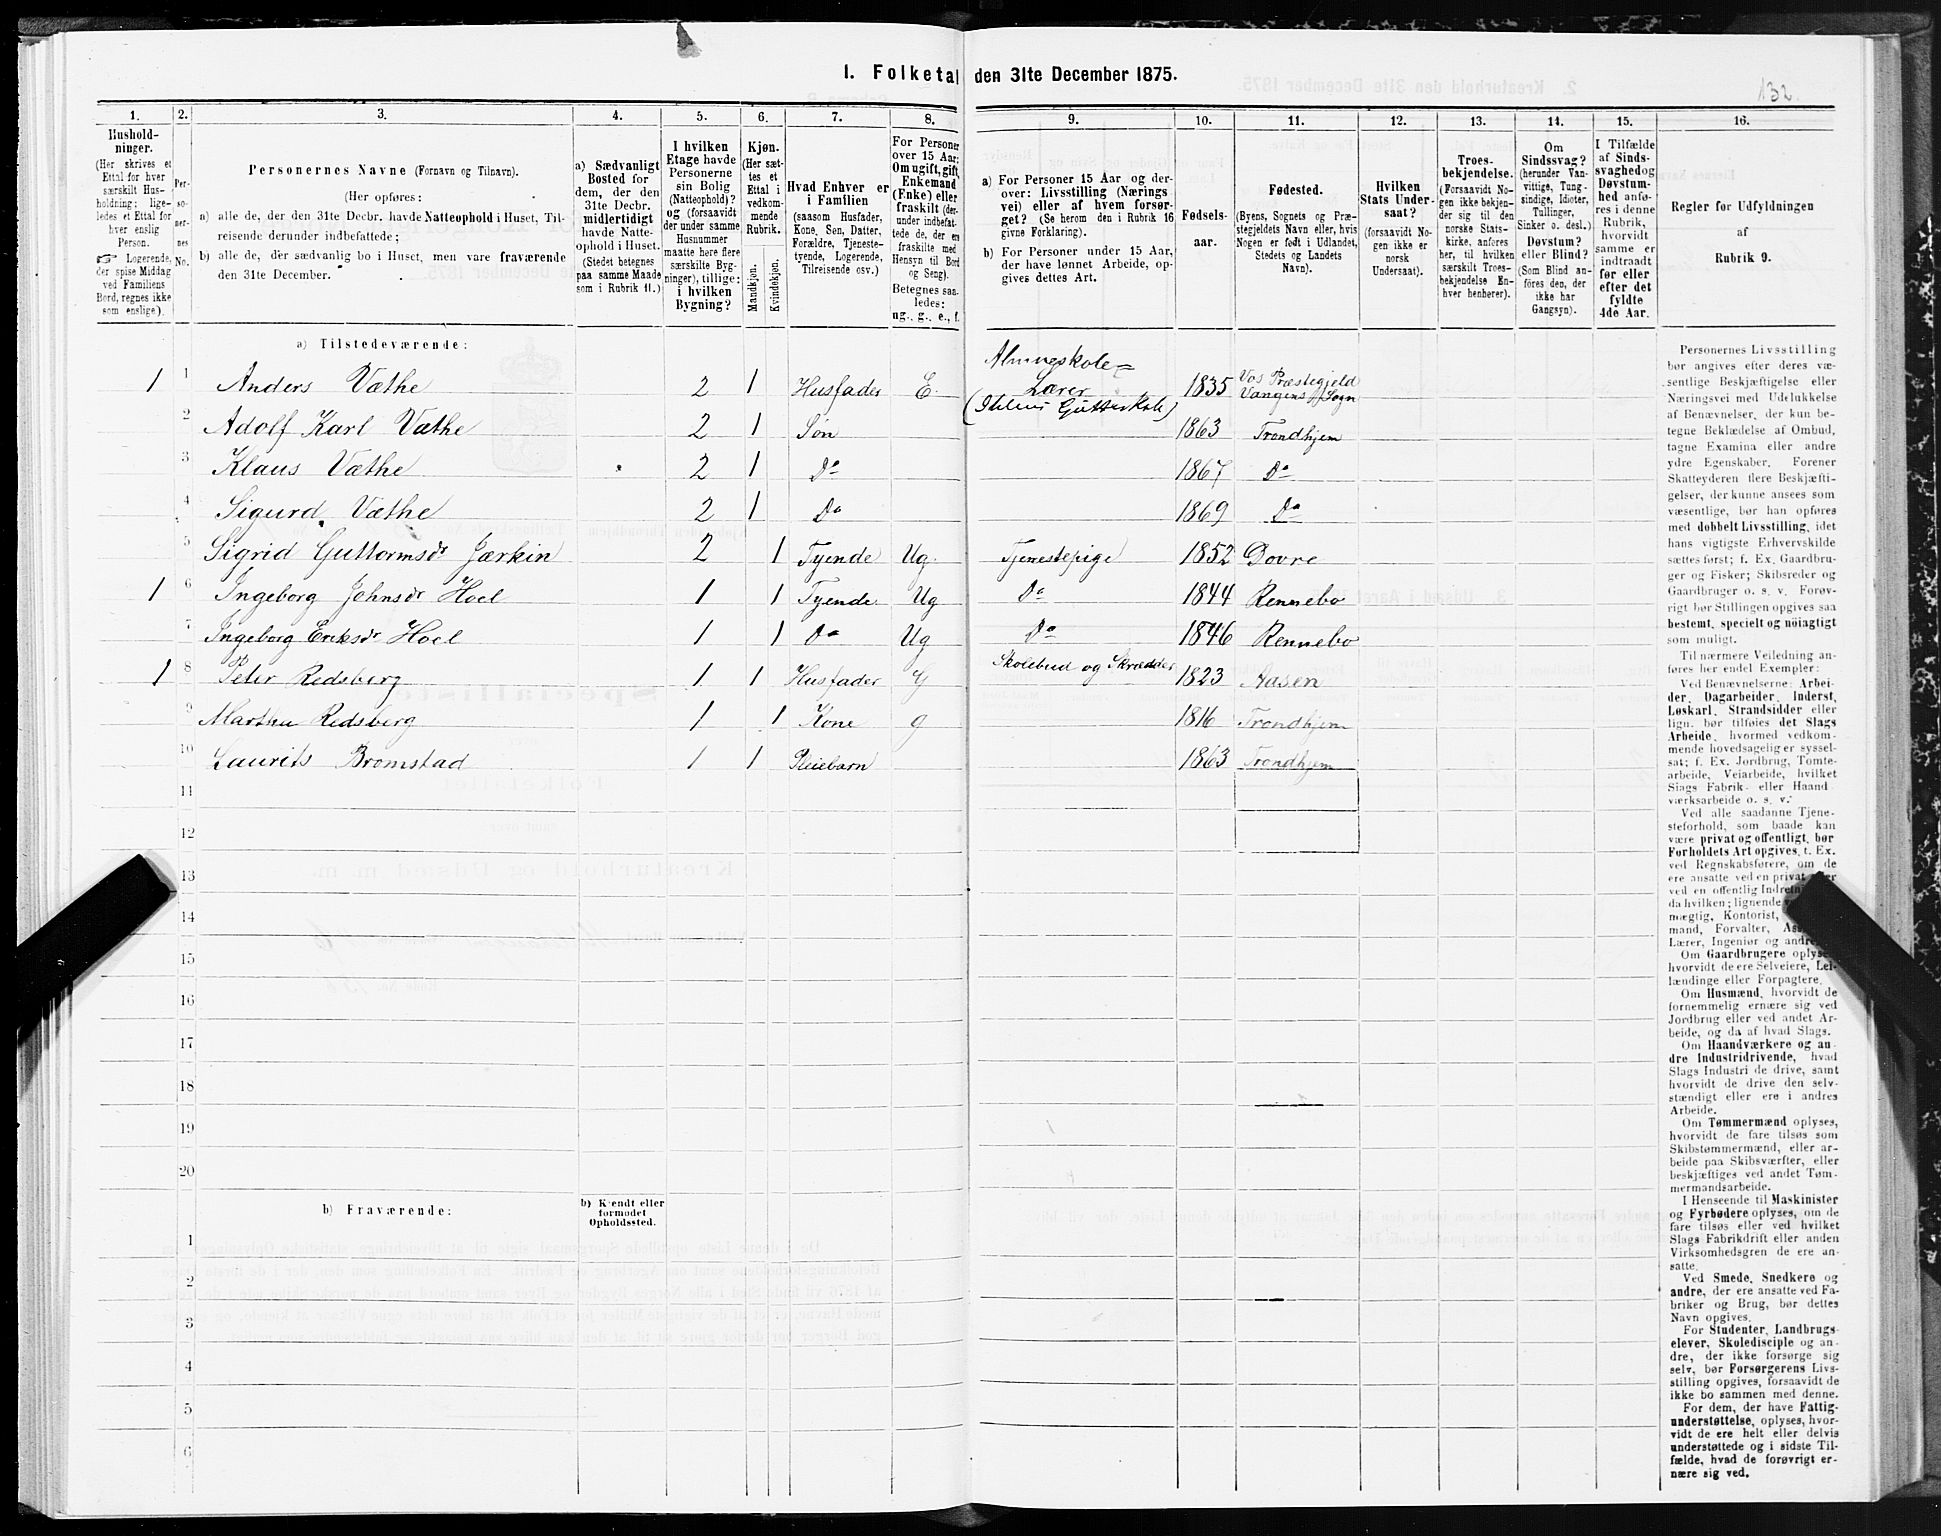 I. Folketal den 31te December 1875.
132.
1. 2. 3. 4. 5. 6. 7. 8. 9. 10. 11. 12. 13. 14. 15. 16.
Hushold-
ninger.
(Her skrives et
Ettal for hver
særskilt Hus-
holdning; lige-
ledes et Ettal for
hver enslig
Person.
☞ Logerende,
der spise Middag
ved Familiens
Bord, regnes ikke
som enslige).
Per-
so-
ner-
nes
No.
Personernes Navne (Fornavn og Tilnavn).
(Her opføres:
a) alle de, der den 31te Decbr. havde Natteophold i Huset, Til-
reisende derunder indbefattede;
b) alle de, der sædvanlig bo i Huset, men vare fraværende
den 31te December.
a) Sædvanligt
Bosted for
dem, der den
31te Decbr.
midlertidigt
havde Natte-
ophold i Huset.
(Stedet betegnes
paa samme Maade
som i Rubrik 11.)
I hvilken
Etage havde
Personerne
sin Bolig
(Natteophold)?
og (forsaavidt
der under samme
Husnummer
maatte høre flere
særskilte Byg-
ninger), tillige:
i hvilken
Bygning?
Kjøn.
(Her sæt-
tes et
Ettal i
vedkom-
mende
Rubrik.
Mandkjøn.
Kvindekjøn.
Hvad Enhver er
i Familien
(saasom Husfader,
Kone, Søn, Datter,
Forældre, Tjeneste-
tyende, Logerende,
Tilreisende osv.)
For Personer
over 15 Aar:
Om ugift, gift,
Enkemand
(Enke) eller
fraskilt (der-
under indbefat-
tede de, der ere
fraskilte med
Hensyn til Bord
og Seng).
Betegnes saa-
ledes:
ug., g., e., f.
a) For Personer 15 Aar og der-
over: Livsstilling (Nærings
vei) eller af hvem forsør-
get? (Se herom den i Rubrik 16
givne Forklaring).
b) For Personer under 15 Aar,
der have lønnet Arbeide, op-
gives dettes Art.
Fødsels-
aar.
Fødested.
(Byens, Sognets og Præ-
stegjeldets Navn eller, hvis
Nogen er født i Udlandet,
Stedets og Landets
Navn).
Hvilken
Stats Under-
saat?
(forsaavidt No-
gen ikke er
norsk
Undersaat).
Troes-
bekjendelse.
(Forsaavidt No-
gen ikke bekjen-
der sig til den
norske Stats-
kirke, anføres
her, til hvilken
særskilt Troes-
bekjendelse En-
hver henhører).
Om
Sindssvag?
(herunder Van-
vittige, Tung-
sindige, Idioter,
Tullinger,
Sinker o. desl.)
Døvstum?
eller Blind?
(Som Blind an-
føres den, der
ikke har
Gangsyn).
I Tilfælde
af Sinds-
svaghed og
Døvstum-
hed anfø-
res i denne
Rubrik,
hvorvidt
samme er
indtraadt
før eller
efter det
fyldte
4de Aar.
Regler for Udfyldningen
af
Rubrik 9.
a) Tilstedeværende:
1 1 Anders Væthe 2 1 Husfader E. Almueskole= Lærer 1835 Vos Præstegjeld Vangens Sogn
2 Adolf Karl Væthe 2 1 Søn 1863 Trondhjem
3 Klaus Væthe 2 1 Do 1867 Do
4 Sigurd Væthe 2 1 Do 1869 Do
5 Sigrid Guttormsdr Jærkin 2 1 Tyende Ug. Tjenestepige 1852 Dovre
1 6 Ingeborg Johnsdr Hoel 1 1 Tyende Ug Do 1844 Rennebo
7 Ingeborg Eriksdr Hoel 1 1 Do Ug Do 1846 Rennebo
1 8 Peter Redsberg 1 1 Husfader G Skolebud og Skrædder 1823 Aasen
9 Martha Redsberg 1 1 Kone g 1816 Trondhjem
10 Laurits Bromstad 1 1 Pleiebarn 1863 Trondhjem
11
12
13
14
15
16
17
18
19
20
b) Fraværende:
b) Kjendt eller
formodet
Opholdssted.
1
2
3
4
5
6
Personernes Livsstilling
bør angives efter deres væ-
sentlige Beskjæftigelse eller
Næringsvei med Udelukkelse
af Benævnelser, der kun be-
tegne Beklædelse af Ombud,
tagne Examina eller andre
ydre Egenskaber. Forener
Skatteyderen flere Beskjæfti-
gelser, der kunne ansees som
væsentlige, bør han opføres
med dobbelt Livsstilling, idet
hans vigtigste Erhvervskilde
sættes først; f. Ex. Gaardbru-
ger og Fisker; Skibsreder og
Gaardbruger o. s. v. Forøv-
rigt bør Stillingen opgives saa
bestemt, specielt og nöiagtigt
som muligt.
Til nærmere Veiledning an-
føres her endel Exempler:
Ved Benævnelserne: Arbei-
der, Dagarbeider, Inderst,
Løskarl, Strandsidder eller
lign. bør tilføies det Slags
Arbeide, hvormed vedkom-
mende hovedsagelig er syssel-
sat; f. Ex. Jordbrug, Tomte-
arbeide, Veiarbeide, hvilket
Slags Fabrik- eller Haand
værksarbeide o. s. v.
Ved alle saadanne Tjene-
steforhold, som baade kan
være privat og offentligt, bør
Forholdets Art opgives, t. Ex.
ved Regnskabsførere, om de
ere ansatte ved en privat
ved en offentlig Indretn
da hvilken; lignende
mægtig, Kontorist,
mand, Forvalter,
Lærer, Ingeniør og andre
Om Gaardbrugere oplys
hvorvidt de ere Selveiere, Lei-
lændinge eller Forpagtere.
Om Husmænd, hvorvidt de
fornemmelig ernære sig ved
Jordbrug eller ved andet Ar-
beide, og da af hvad Slags.
Om Haandværkere og an-
dre Industridrivende, hvad
Slags Industri de drive, samt
hvorvidt de drive den selv-
stændigt eller ere i andres
Arbeide.
Om Tømmermænd oplyses,
hvorvidt de fare tilsøs som
Skibstømmermænd, eller ar-
beide paa Skibsværfter, eller
beskjæftiges ved andet Tøm-
mermandsarbeide.
I Henseende til Maskinister
og Fyrbødere oplyses, om de
fare tilsøs eller ved hvilket
Slags Fabrikdrift eller anden
Virksomhedsgren de ere an-
satte.
Ved Smede, Snedkere og
andre, der ere ansatte ved Fa-
briker og Brug, bør dettes
Navn opgives.
For Studenter, Landbrugs-
elever, Skoledisciple og an-
dre, der ikke forsørge sig
selv, bør Forsørgerens Livs-
stilling opgives, forsaavidt de
ikke bo sammen med denne.
For dem, der have Fattig-
understøttelse, oplyses, hvor-
vidt de ere helt eller delvis
understøttede og i sidste Til-
fælde, hvad de forøvrigt er-
nære sig ved.